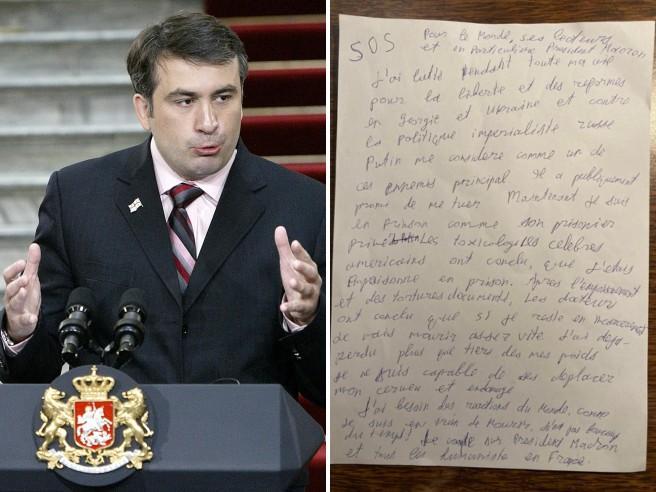 SOS
Pour le Monde, ses lecteurs
et en particulière President Macron
J'ai lutté pendant toute ma vie
pour la liberté et des reformes
en Georgie et Ukraine et contre
la politique imperialiste russe
Putin me considere comme un de
ces ennemis principal Il a publiquement
promi de me tuer Maintenant je suis
en prison comme son prisonier
privé Les toxicologues celebres
americains ont conclu, que j'etais
Empoisonné en prison. Apres l'empoisonnement
et des tortures documents, Les docteurs
ont conclu que si je reste en
je vais mourir asser vite J'ai deja
perdu plus que tiers des mes poids
je ne suis capable de des deplacer
mon cerveu est
J'ai besoin des reactions du Monde, comme
je suis en train de mourir, pas beaucoup
du temps! Je compte sur President Macron
et tous les humaniste en France.